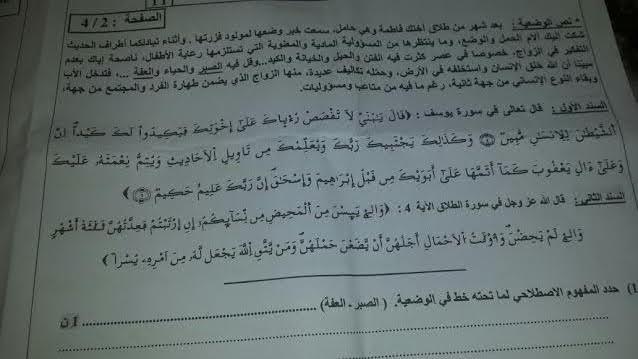 الصفحة : 4/2
* نص الوضعية : بعد شهر من طلاق أختك فاطمة وهي حامل، سمعت خبر وضعها لمولود فزرتها . وأثناء تبادلكما أطراف الحديث
شكت إليك آلام الحمل والوضع، وما ينتظرها من المسؤولية المادية والمعنوية التي تستلزمها رعاية الأطفال، ناصحة إياك بعدم
التفكير في الزواج، خصوصا في عصر كثرت فيه الفتن والحيل والخيانة والكيد...وقل فيه الصبر والحياء والعفة ...، فتدخل الأب
مبينا أن الله خلق الإنسان واستخلفه في الأرض، وحمله تكاليف عديدة، منها الزواج الذي يضمن طهارة الفرد والمجتمع من جهة،
وبقاء النوع الإنساني من جهة ثانية، رغم ما فيه من متاعب ومسؤوليات.
السند الأول: قال تعالى في سورة يوسف : ﴿قَالَ يَٰبُنَيِّ لَا تَقْصُصْ رُءْيَاكَ عَلَىٰٓ إِخْوَتِكَ فَيَكِيدُوا۟ لَكَ كَيْداً اِنَّ
اَلشَّيْطَٰنَ لِلِانسَٰنِ عَدُوٌّ مُّبِينٌ ۝ وَكَذَٰلِكَ يَجْتَبِيكَ رَبُّكَ وَيُعَلِّمُكَ مِن تَاوِيلِ اِلَاحَادِيثِ وَيُتِمُّ نِعْمَتَهُۥ عَلَيْكَ
وَعَلَىٰٓ ءَالِ يَعْقُوبَ كَمَآ أَتَمَّهَا عَلَىٰٓ أَبَوَيْكَ مِن قَبْلُ إِبْرَٰهِيمَ وَإِسْحَٰقَ إِنَّ رَبَّكَ عَلِيمٌ حَكِيمٌ ۝﴾
السند الثاني: قال الله عز وجل في سورة الطلاق الآية 4 : ﴿وَالِے يَئِسْنَ مِنَ اَلْمَحِيضِ مِن نِّسَآئِكُمُۥٓ إِنِ اِرْتَبْتُمْ فَعِدَّتُهُنَّ ثَلَٰثَةُ أَشْهُرٍ
وَالِے لَمْ يَحِضْنَ وَأُو۟لَٰتُ اُلَاحْمَالِ أَجَلُهُنَّ أَنْ يَّضَعْنَ حَمْلَهُنَّ وَمَنْ يَّتَّقِ اِللَّهَ يَجْعَل لَّهُۥ مِنَ اَمْرِهِۦ يُسْراً﴾
1) حدد المفهوم الاصطلاحي لما تحته خط في الوضعية. ( الصبر ـ العفة) ........................ 1ن